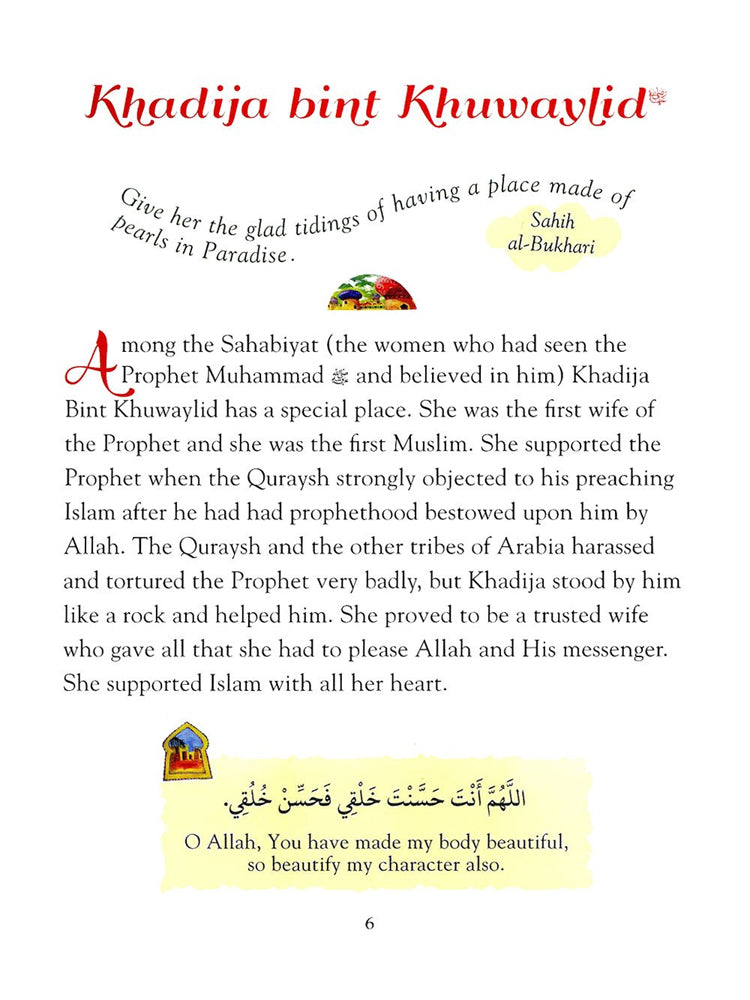 Khadija bint Khuwaylid
Give her the glad tidings of having a place made of
pearls in Paradise.
Sahih
al-Bukhari
Among the Sahabiyat (the women who had seen the
Prophet Muhammad ﷺ and believed in him) Khadija
Bint Khuwaylid has a special place. She was the first wife of
the Prophet and she was the first Muslim. She supported the
Prophet when the Quraysh strongly objected to his preaching
Islam after he had had prophethood bestowed upon him by
Allah. The Quraysh and the other tribes of Arabia harassed
and tortured the Prophet very badly, but Khadija stood by him
like a rock and helped him. She proved to be a trusted wife
who gave all that she had to please Allah and His messenger.
She supported Islam with all her heart.
اللَّهُمَّ أَنْتَ حَسَّنْتَ خَلْقِي فَحَسِّنْ خُلُقِي.
O Allah, You have made my body beautiful,
so beautify my character also.
6